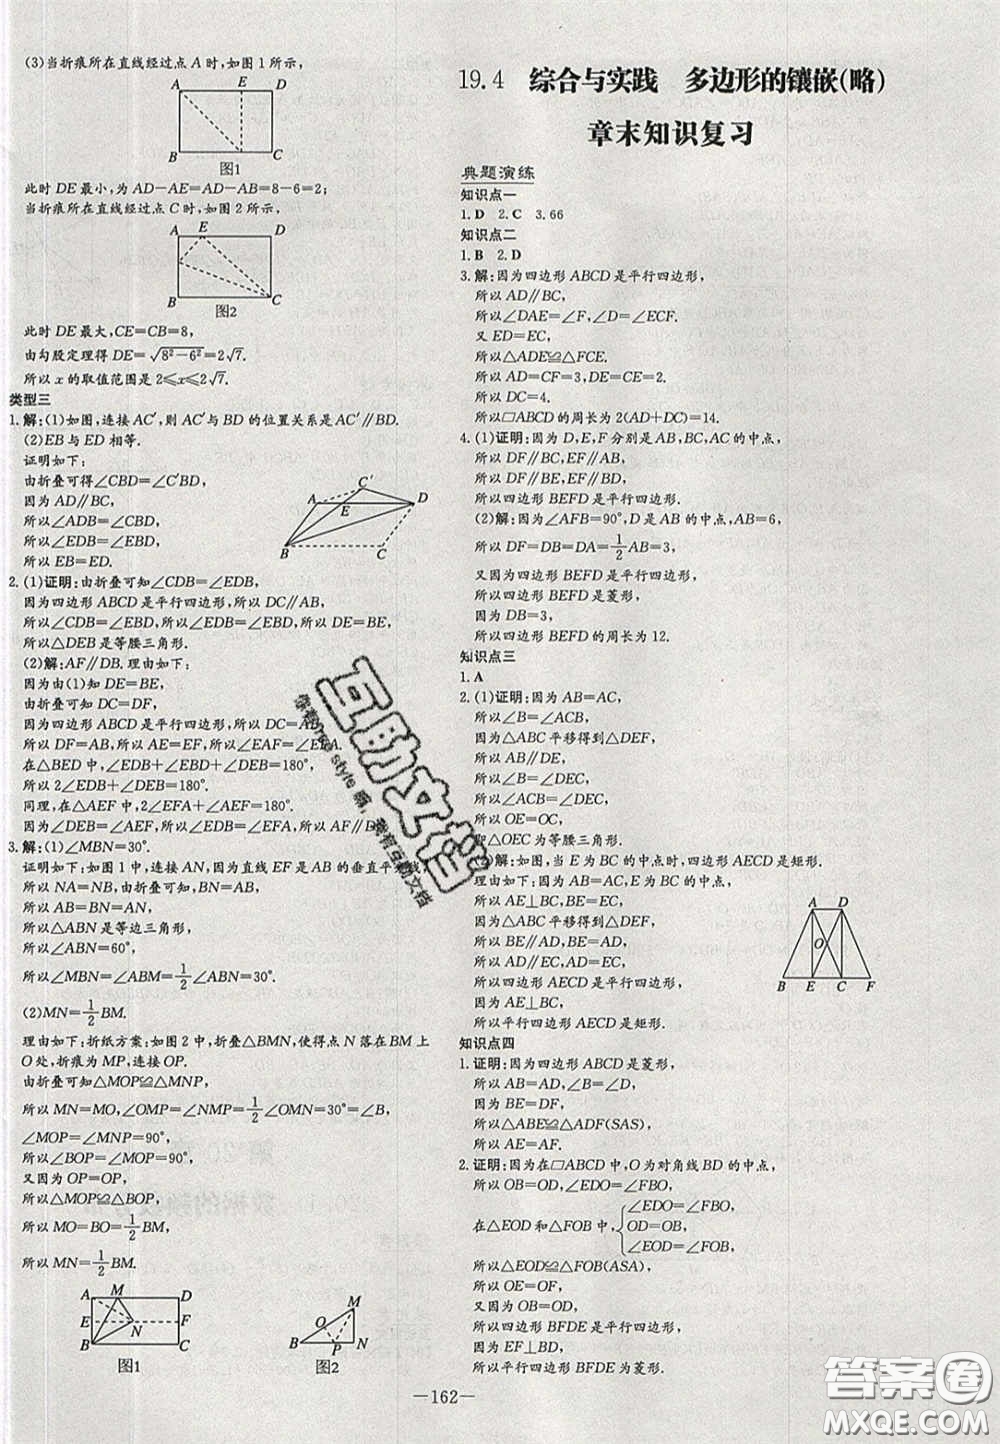 (3)当折痕所在直线经过点A时,如图1所示,
A E D
B C
图1
此时DE最小,为AD-AE=AD-AB=8-6=2;
当折痕所在直线经过点C时,如图2所示,
A E D
B C
图2
此时DE最大,CE=CB=8,
由勾股定理得DE=√8²-6²=2√7.
所以x的取值范围是2≤x≤2√7.
类型三
1.解:(1)如图,连接AC′,则AC′与BD的位置关系是AC′∥BD.
(2)EB与ED相等.
证明如下:
由折叠可得∠CBD=∠C′BD,
因为AD∥BC,
所以∠ADB=∠CBD,
所以∠EDB=∠EBD,
所以EB=ED.
C′
A E D
B C
2.(1)证明:由折叠可知∠CDB=∠EDB,
因为四边形ABCD是平行四边形,所以DC∥AB,
所以∠CDB=∠EBD,所以∠EDB=∠EBD,所以DE=BE,
所以△DEB是等腰三角形.
(2)解:AF∥DB.理由如下:
因为由(1)知DE=BE,
由折叠可知DC=DF,
因为四边形ABCD是平行四边形,所以DC=AB,
所以DF=AB,所以AE=EF,所以∠EAF=∠EFA.
在△BED中,∠EDB+∠EBD+∠DEB=180°,
所以2∠EDB+∠DEB=180°.
同理,在△AEF中,2∠EFA+∠AEF=180°.
因为∠DEB=∠AEF,所以∠EDB=∠EFA,所以AF∥DB.
3.解:(1)∠MBN=30°.
证明如下:如图1中,连接AN,因为直线EF是AB的垂直平分线,
所以NA=NB,由折叠可知,BN=AB,
所以AB=BN=AN,
所以△ABN是等边三角形,
所以∠ABN=60°,
所以∠MBN=∠ABM=1/2∠ABN=30°.
(2)MN=1/2BM.
理由如下:折纸方案:如图2中,折叠△BMN,使得点N落在BM上
O处,折痕为MP,连接OP.
由折叠可知△MOP≌△MNP,
所以MN=MO,∠OMP=∠NMP=1/2∠OMN=30°=∠B,
∠MOP=∠MNP=90°,
所以∠BOP=∠MOP=90°,
又因为OP=OP,
所以△MOP≌△BOP,
所以MO=BO=1/2BM,
所以MN=1/2BM.
A M D
E N F
B C
图1
M
O
B P N
图2
19.4 综合与实践 多边形的镶嵌(略)
章末知识复习
典题演练
知识点一
1.D 2.C 3.66
知识点二
1.B 2.D
3.解:因为四边形ABCD是平行四边形,
所以AD∥BC,
所以∠DAE=∠F,∠D=∠ECF.
又ED=EC,
所以△ADE≌△FCE.
所以AD=CF=3,DE=CE=2.
所以DC=4.
所以▱ABCD的周长为2(AD+DC)=14.
4.(1)证明:因为D,E,F分别是AB,BC,AC的中点,
所以DF∥BC,EF∥AB,
所以DF∥BE,EF∥BD,
所以四边形BEFD是平行四边形.
(2)解:因为∠AFB=90°,D是AB的中点,AB=6,
所以DF=DB=DA=1/2AB=3,
又因为四边形BEFD是平行四边形,
所以四边形BEFD是菱形.
因为DB=3,
所以四边形BEFD的周长为12.
知识点三
1.A
2.(1)证明:因为AB=AC,
所以∠B=∠ACB,
因为△ABC平移得到△DEF,
所以AB∥DE,
所以∠B=∠DEC,
所以∠ACB=∠DEC,
所以OE=OC,
即△OEC为等腰三角形.
(2)解:如图,当E为BC的中点时,四边形AECD是矩形.
理由如下:因为AB=AC,E为BC的中点,
所以AE⊥BC,BE=EC,
因为△ABC平移得到△DEF,
所以BE∥AD,BE=AD,
所以AD∥EC,AD=EC,
所以四边形AECD是平行四边形,
因为AE⊥BC,
所以平行四边形AECD是矩形.
A D
O
B E C F
知识点四
1.证明:因为四边形ABCD是菱形,
所以AB=AD,∠B=∠D,
因为BE=DF,
所以△ABE≌△ADF(SAS),
所以AE=AF.
2.证明:因为在▱ABCD中,O为对角线BD的中点,
所以BO=DO,∠EDO=∠FBO,
在△EOD和△FOB中,{∠EDO=∠FBO,
OD=OB,
∠EOD=∠FOB,
所以△EOD≌△FOB(ASA),
所以OE=OF,
又因为OB=OD,
所以四边形BFDE是平行四边形,
因为EF⊥BD,
所以平行四边形BFDE为菱形.
—162—
互助文档
答案圈
MXQE.COM